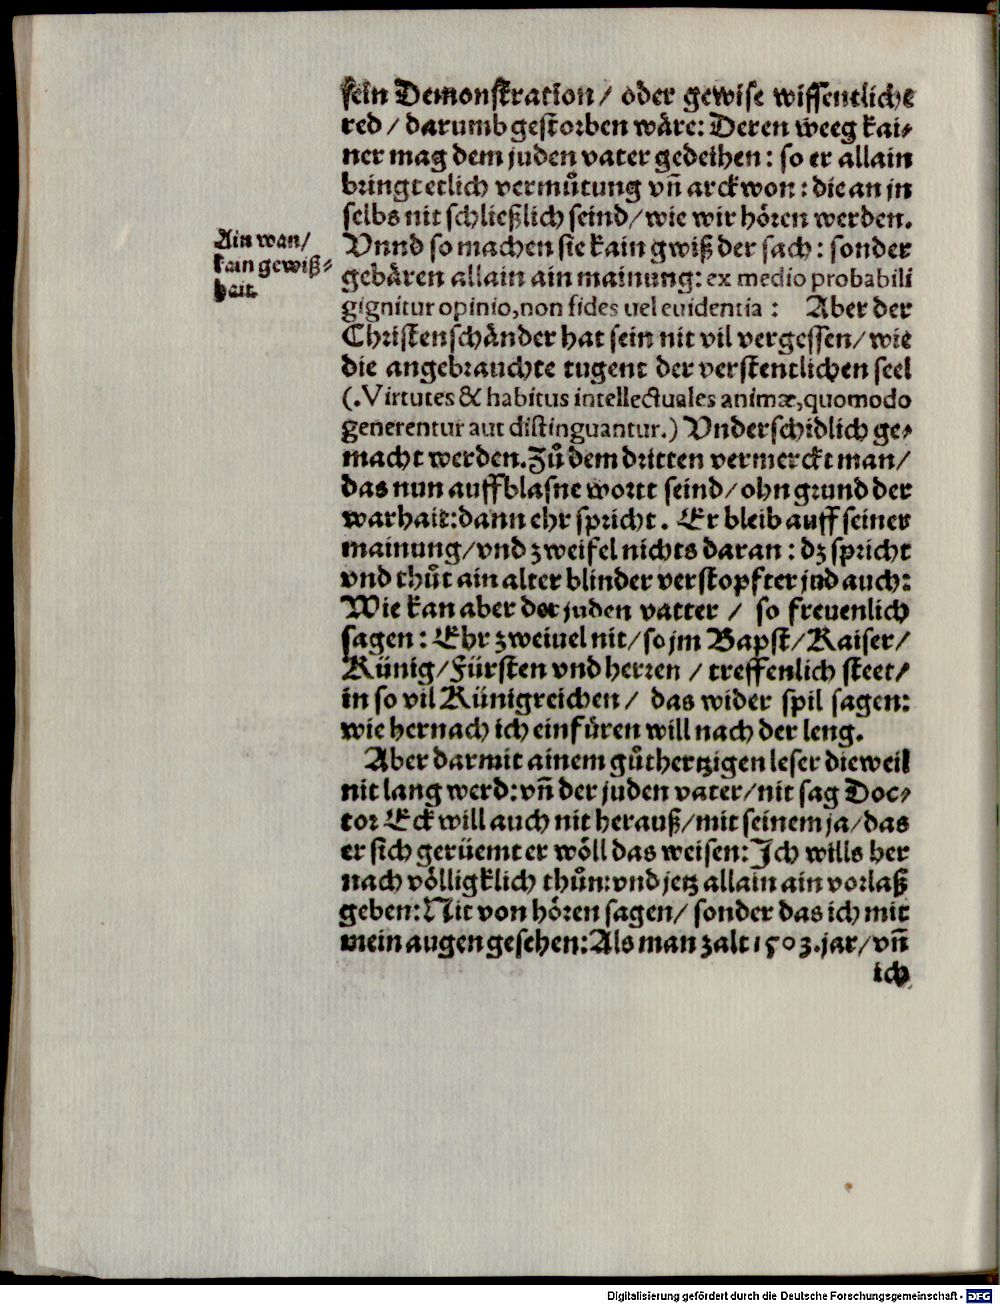 sein Demonstration/ oder gewise wissentliche
red/ darumb gestorben wäre: Deren weeg kai⸗
ner mag dem juden vater gedeihen: so er allain
bringt etlich vermůtung vñ arckwon: die an jn
selbs nit schließlich seind/ wie wir hören werden.
Ain wan/
kain gewiß⸗
hait.
Vnnd so machen sie kain gwiß der sach: sonder
gebären allain ain mainung: ex medio probabili
gignitur opinio, non fides uel euidentia : Aber der
Christenschänder hat sein nit vil vergessen/ wie
die angebrauchte tugent der verstentlichen seel
(.Virtutes & habitus intellectuales animæ, quomodo
generentur aut distinguantur.) Vnderschidlich ge⸗
macht werden. Zů dem dritten vermerckt man/
das nun auffblasne wortt seind/ ohn grund der
warhait: dann ehr spricht. Er bleib auff seiner
mainung/ vnd zweifel nichts daran: dz spricht
vnd thůt ain alter blinder verstopfter jud auch:
Wie kan aber der juden vatter / so freuenlich
sagen: Ehr zweiuel nit/ so jm Bapst/ Kaiser/
Künig/ Fürsten vnd herren / treffenlich steet/
in so vil Künigreichen/ das wider spil sagen:
wie hernach ich einfüren will nach der leng.
Aber darmit ainem gůthertzigen leser dieweil
nit lang werd: vñ der juden vater/ nit sag Doc⸗
tor Eck will auch nit herauß/ mit seinem ja/ das
er sich gerüemt er wöll das weisen: Ich wills her
nach völligklich thůn: vnd jetz allain ain vorlaß
geben: Nit von hören sagen/ sonder das ich mit
mein augen gesehen: Als man zalt 1503. jar/ vñ
ich
Digitalisierung gefördert durch die Deutsche Forschungsgemeinschaft - DFG